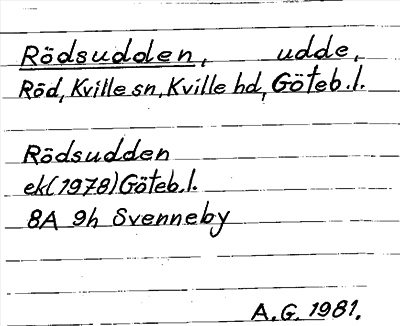 Rödsudden, udde,
Röd, Kville sn, Kville hd, Göteb.l.
Rödsudden
ek(1978)Göteb.l.
8A 9h Svenneby
A.G. 1981.